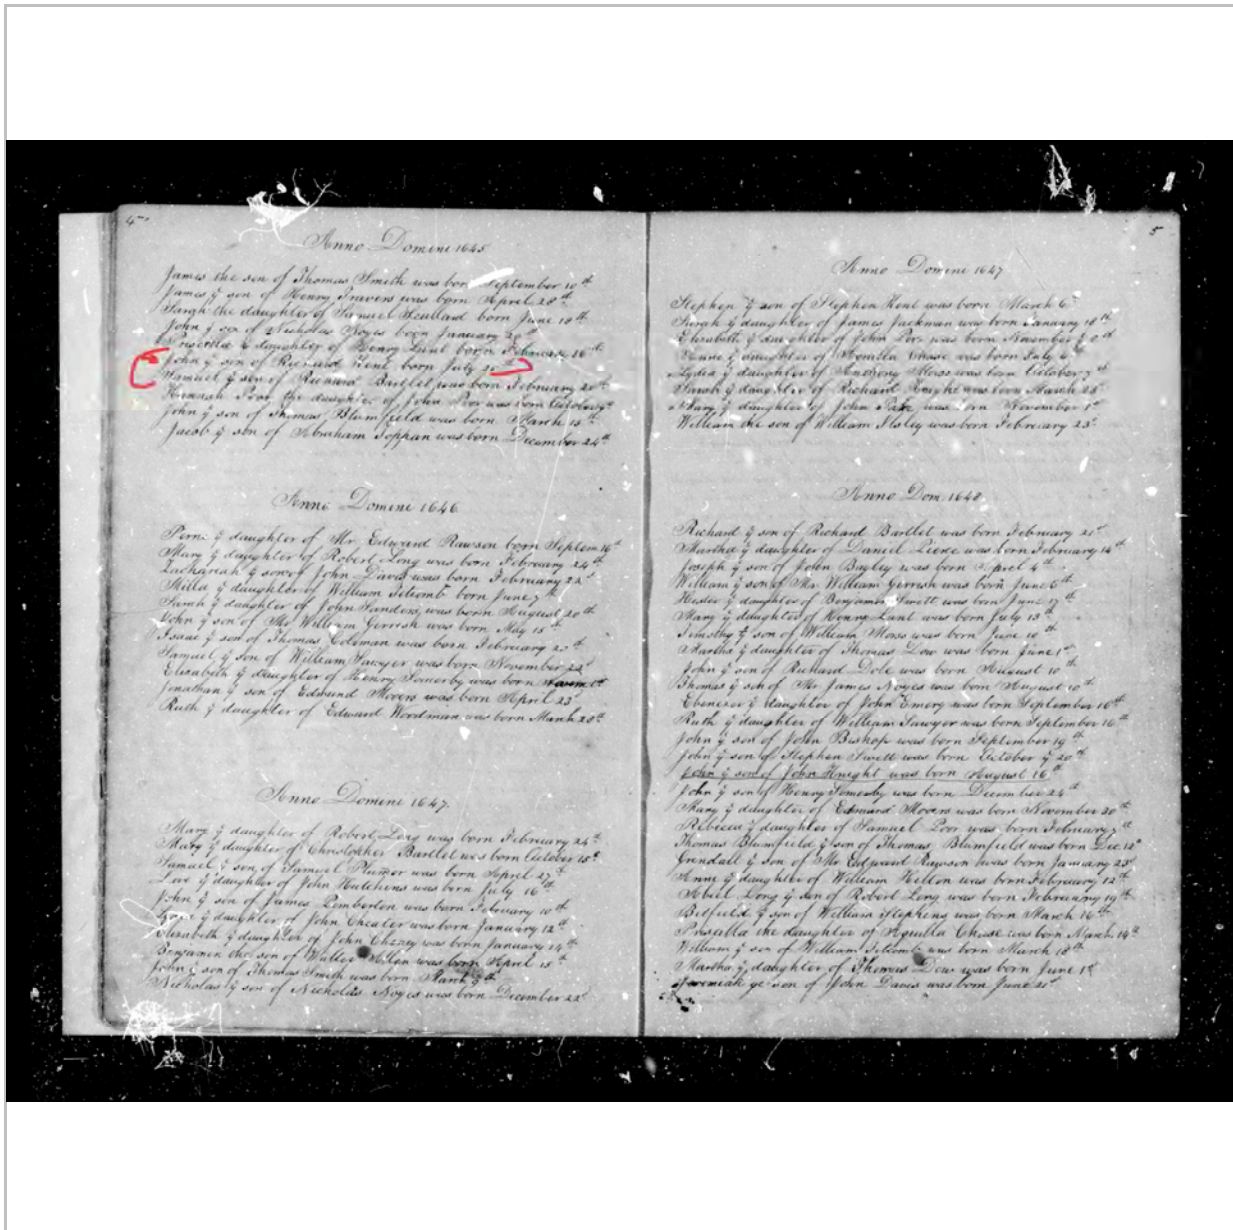 4
Anno Domini 1645
James the son of Thomas Smith was born September 10th
James ye son of Henry Travers was born April 28th
Sarah the daughter of Samuel born June 18th
John ye son of Nicholas Noyes born January
Priscilla ye daughter of Henry Lunt born February 16th
John ye son of Richard Kent born July
Samuel ye son of Richard Bartlet was born February 20th
Hannah Poor the daughter of John Poor was born October
John ye son of Thomas Blumfield was born March 15th
Jacob ye son of Abraham Toppan was born December 24th
Anno Domine 1646
ye daughter of Mr. Edward Rawson born Septem 16th
Mary ye daughter of Robert Long was born February 24th
Zachariah ye son of John Davis was born February 22d
Milla ye daughter of William Titcomb born June 7th
Sarah ye daughter of John Sanders was born August 20th
John ye son of Mr William Gerrish was born May 15th
Isaac ye son of Thomas Coleman was born February
Samuel ye son of William Sawyer was born November 22d
Elisabeth ye daughter of Henry Somerby was born
Jonathan ye son of Edmund Moores was born April 23
Ruth ye daughter of Edward Woodman was born March 28th
Anno Domine 1647
Mary ye daughter of Robert Long was born February 24th
Mary ye daughter of Christopher Bartlet was born October 15th
Samuel ye son of Samuel Plumer was born April 27th
Love ye daughter of John Hutchens was born July 16th
John ye son of James Pemberton was born February 10th
ye daughter of John Chester was born January 12th
Elisabeth ye daughter of John Cheney was born January 14th
Benjamin the son of Walter Allen was born April 15th
John ye son of Thomas Smith was born March 9th
Nicholas ye son of Nicholas Noyes was born December 22d
5
Anno Domine 1647
Stephen ye son of Stephen Kent was born March 6
Sarah ye daughter of James Jackman was born January 18th
Elizabeth ye daughter of John was born November
Anne ye daughter of Aquilla Chase was born July 6
Lydia ye daughter of Anthony Morss was born October 7th
Sarah ye daughter of Richard Knight was born March 23
Mary ye daughter of John was born November 1st
William the son of William Ilsley was born February 23
Anno Dom. 1648
Richard ye son of Richard Bartlet was born February 21st
Martha ye daughter of Daniel was born February 14th
Joseph ye son of John Bayley was born April 4th
William ye son of Mr. William Gerrish was born June 6th
Hester ye daughter of Benjamin Swett was born June 17th
Mary ye daughter of Henry Lunt was born July 13th
Timothy ye son of William Morss was born June 10th
Martha ye daughter of Thomas Dow was born June 1st
John ye son of Richard Dole was born August 10th
Thomas ye son of Mr James Noyes was born August 10th
Ebenezer ye daughter of John Emery was born September 16th
Ruth ye daughter of William Sawyer was born September 16th
John ye son of John Bishop was born September 19th
John ye son of Stephen Swett was born October ye 20th
John ye son of John Knight was born August 16th
John ye son of Henry Somerby was born December 24th
Mary ye daughter of Edmund Moores was born November 30th
Rebecca ye daughter of Samuel Poor was born February 7th
Thomas Blumfield ye son of Thomas Blumfield was born Dec 12th
Grendall ye son of Mr Edward Rawson was born January 23d
Anne ye daughter of William Hilton was born February 12th
Abiel Long ye son of Robert Long was born February 19th
Belfield ye son of William Stephens was born March 16th
Prisilla the daughter of Aquilla Chase was born March 14th
William ye son of William Titcomb was born March 18th
Martha ye daughter of Thomas Dow was born June 1st
Jeremiah ye son of John Davis was born June 21st